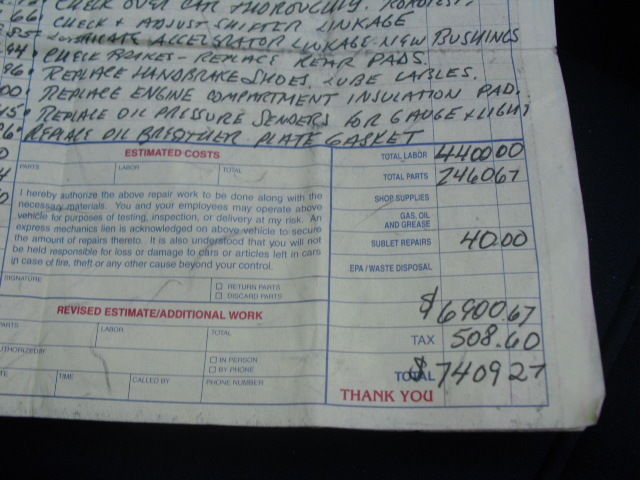 CHECK OVER CAR THOROUGHLY. ROADTEST.
.66 CHECK & ADJUST SHIFTER LINKAGE
.85 ACCELERATOR LINKAGE-NEW BUSHINGS
.94 • CHECK BRAKES - REPLACE REAR PADS.
96 • REPLACE HANDBRAKE SHOES. LUBE CABLES.
00 REPLACE ENGINE COMPARTMENT INSULATION PAD.
45 • REPLACE OIL PRESSURE SENDERS FOR GAUGE & LIGHT
96 • REPLACE OIL BREATHER PLATE GASKET
ESTIMATED COSTS
PARTS LABOR TOTAL
I hereby authorize the above repair work to be done along with the
necessary materials. You and your employees may operate above
vehicle for purposes of testing, inspection, or delivery at my risk. An
express mechanics lien is acknowledged on above vehicle to secure
the amount of repairs thereto. It is also understood that you will not
be held responsible for loss or damage to cars or articles left in cars
in case of fire, theft or any other cause beyond your control.
SIGNATURE
RETURN PARTS
DISCARD PARTS
REVISED ESTIMATE/ADDITIONAL WORK
PARTS LABOR TOTAL
AUTHORIZED BY
IN PERSON
BY PHONE
TIME CALLED BY PHONE NUMBER
TOTAL LABOR 4400.00
TOTAL PARTS 2460.67
SHOP SUPPLIES
GAS, OIL
AND GREASE
SUBLET REPAIRS 40.00
EPA / WASTE DISPOSAL
$6900.67
TAX 508.60
TOTAL $7409.27
THANK YOU